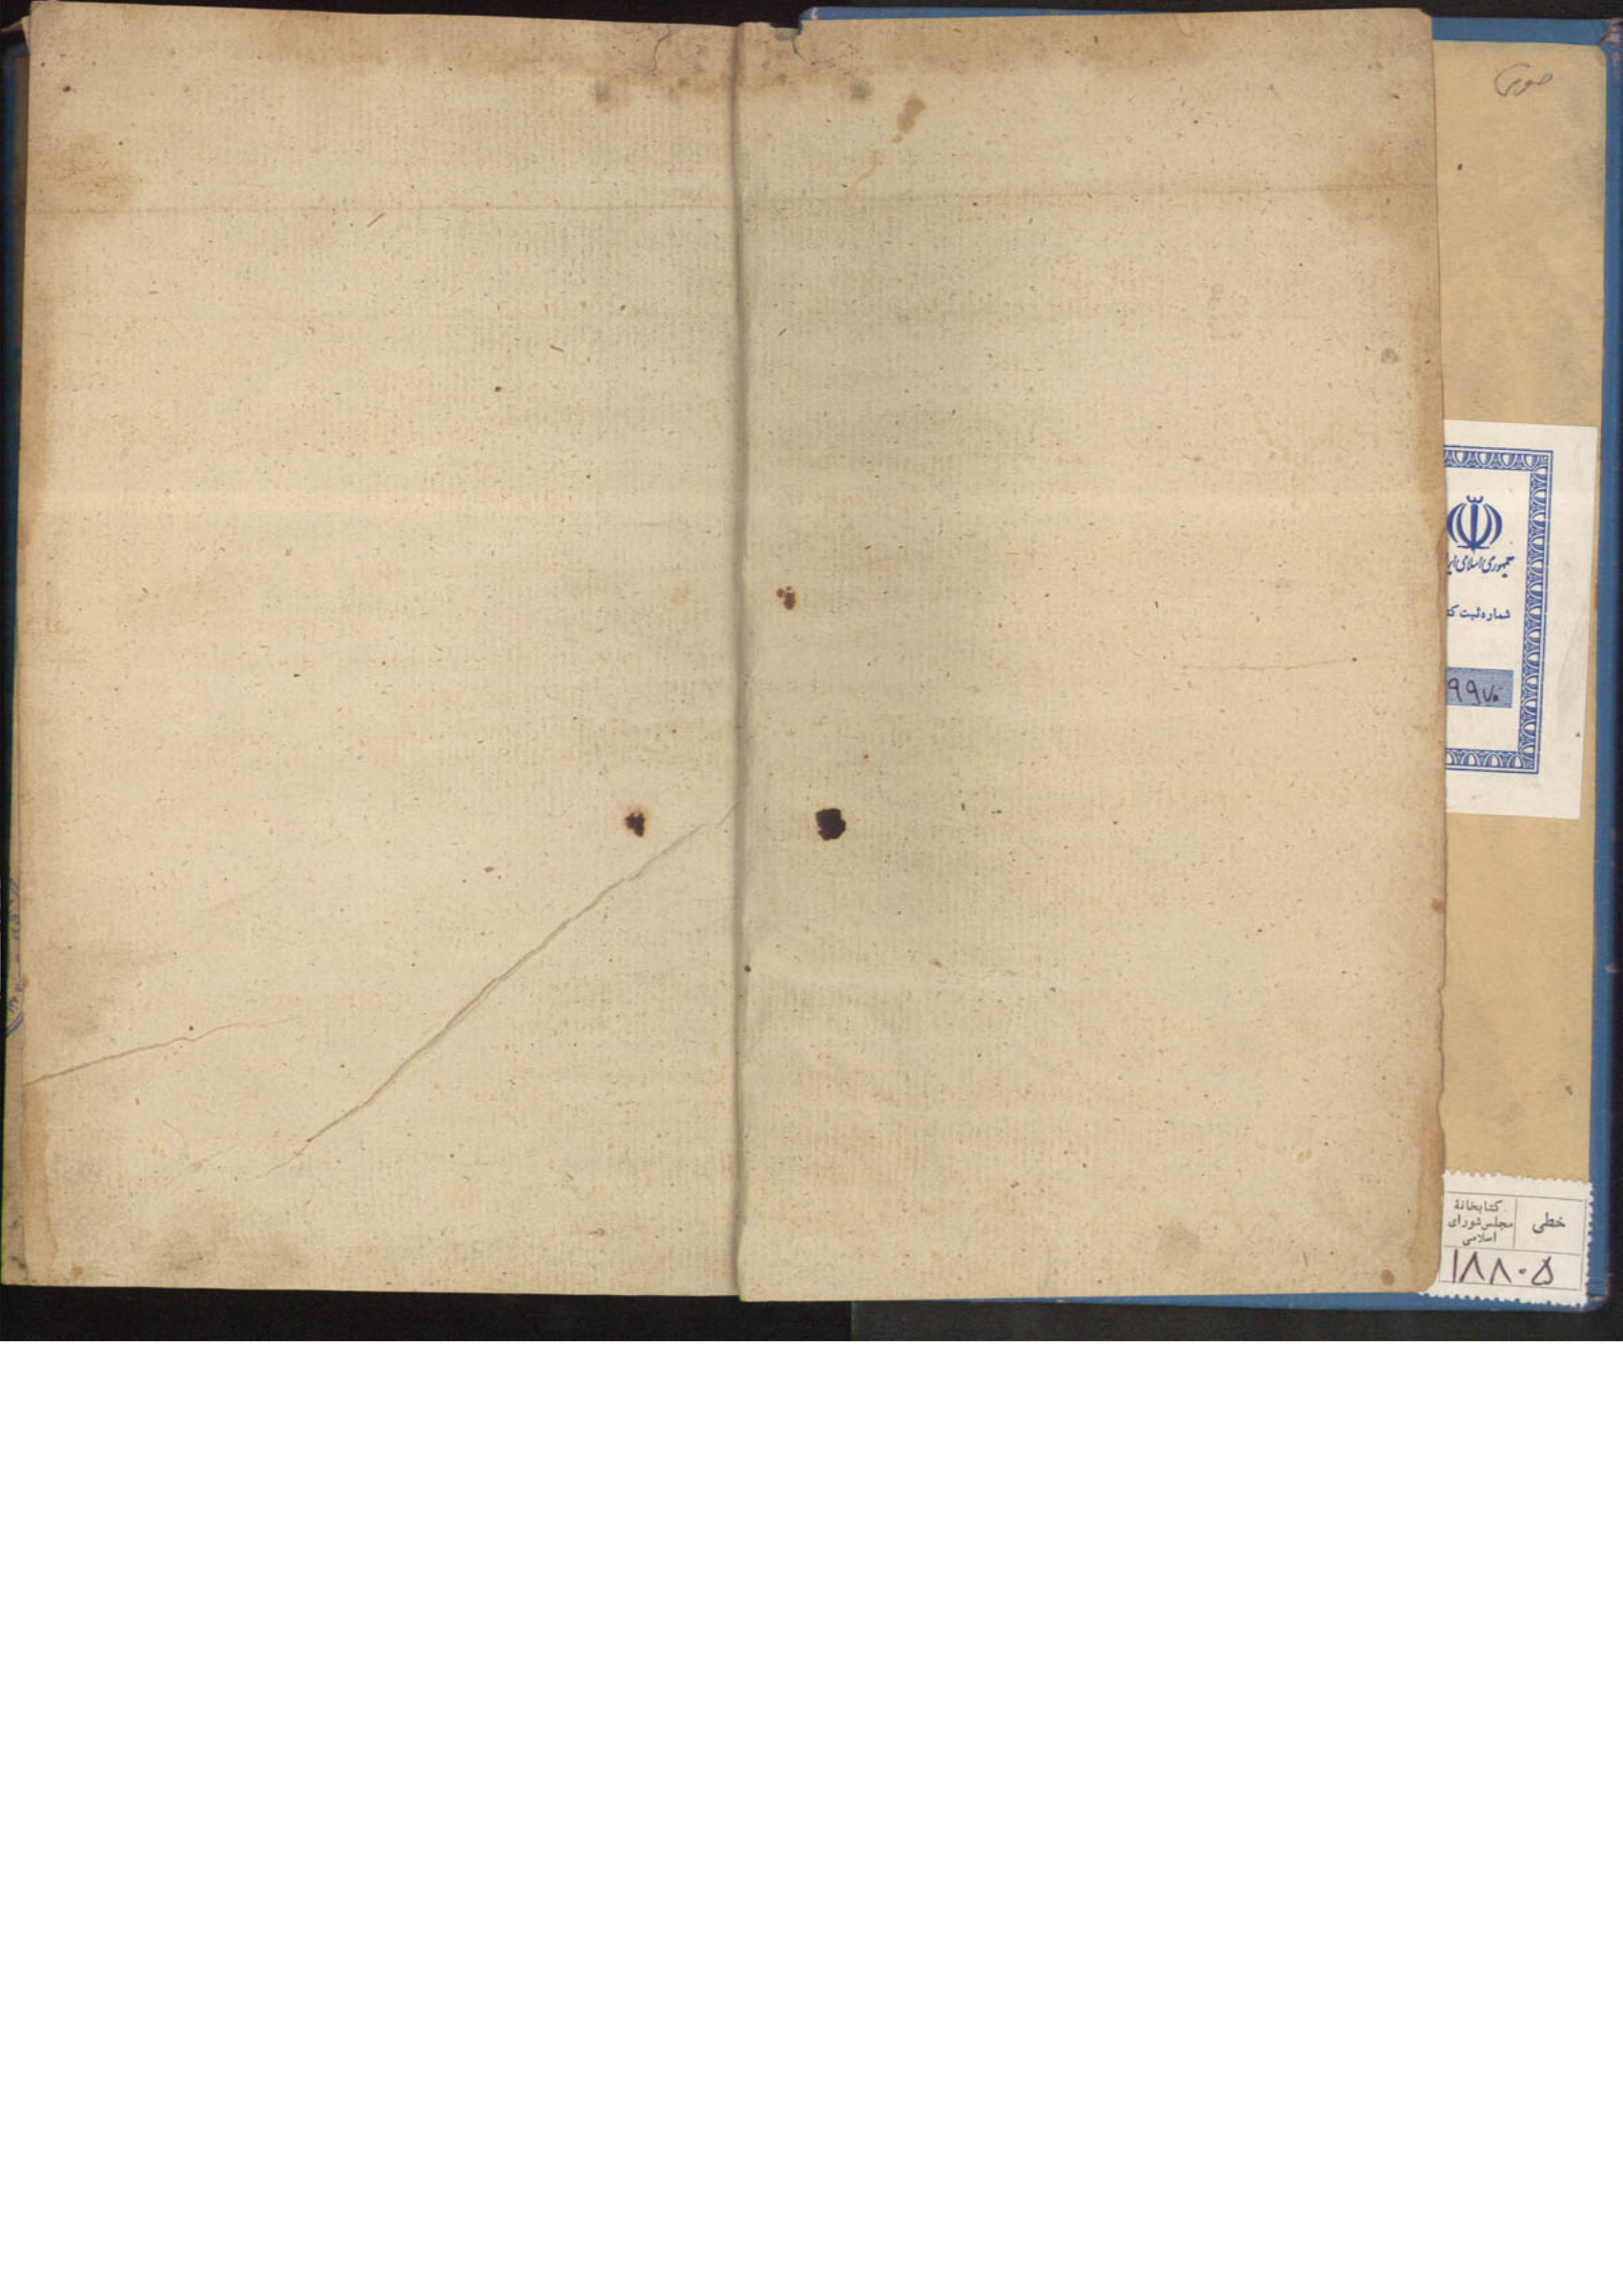 جمهوری اسلامی ایر
شماره ثبت کت
۹۹۷۰
خطی
کتابخانهٔ
مجلس شورای
اسلامی
۱۸۸۰۵